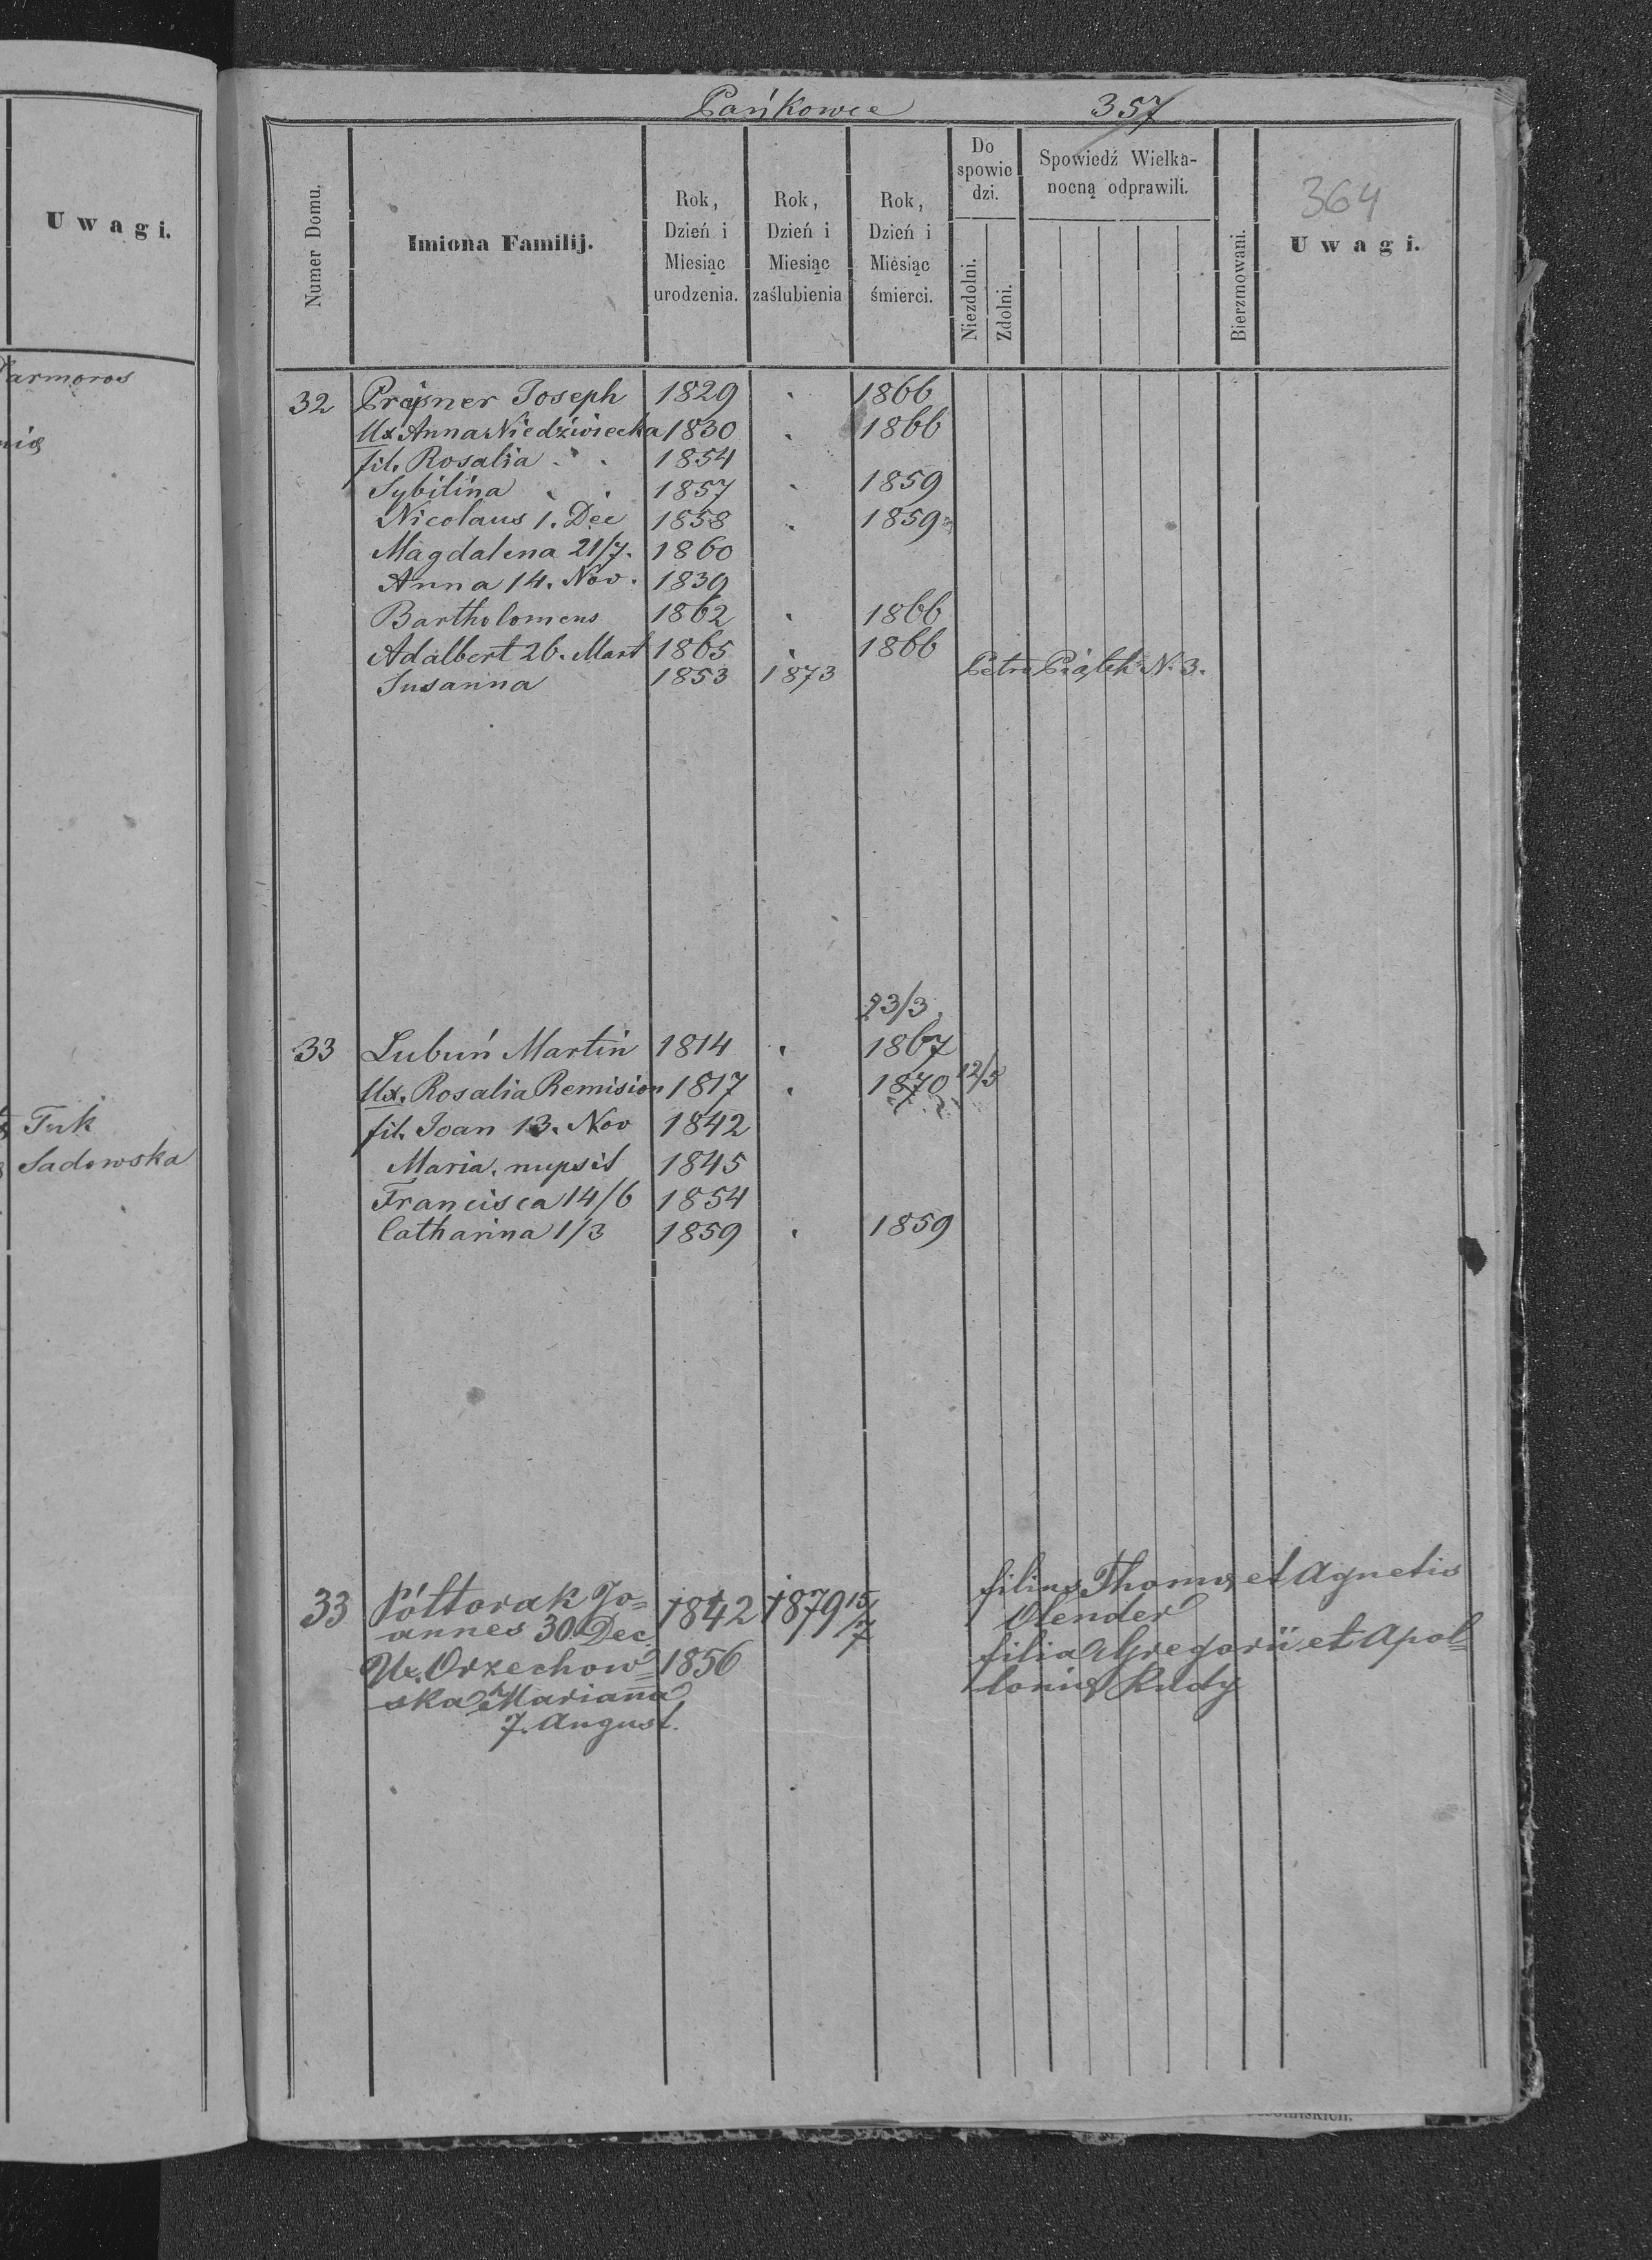 Uwagi.
armoros
Tuk
Sadowska
Pańkowce 357
364
Numer Domu.
Imiona Familij.
Rok, Dzień i Miesiąc urodzenia.
Rok, Dzień i Miesiąc zaślubienia
Rok, Dzień i Miesiąc śmierci.
Do spowie dzi.
Niezdolni.
Zdolni.
Spowiedź Wielka-
nocną odprawili.
Bierzmowani.
Uwagi.
32 Joseph 1829 . 1866
Ux Anna Niedźwiecka 1830 . 1866
fil. Rosalia . . 1854
Sybilina . . 1857 . 1859
Nicolaus 1. Dec 1858 . 1859
Magdalena 21/7. 1860
Anna 14. Nov. 1839
Bartholomeus 1862 . 1866
Adalbert 26. Mart 1865 . 1866
Susanna 1853 1873 Petro Piątek N. 3.
23/3
33 Lubuń Martin 1814 . 1867
Ux. Rosalia Remision 1817 . 1870 12/5
fil. Joan 13. Nov 1842
Maria. nupsit 1845
Francisca 14/6 1854
Catharina 1/3 1859 . 1859
33 Półtorak Jo= 1842 1879 15/7 filius Thomæ et Agnetis
annes 30. Dec. Olender
Ux. Orzechow= 1856 filia Gregorii et Apol=
ska Marianna loniæ Rudy
7. August.